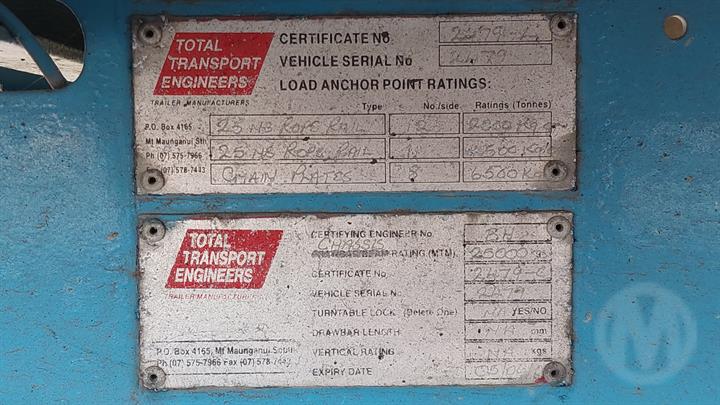 TOTAL TRANSPORT ENGINEERS
TRAILER MANUFACTURERS
P.O. Box 4165
Mt Maunganui Sth
Ph (07) 575-7966
Fax (07) 578-7443
CERTIFICATE No. 2479-L
VEHICLE SERIAL No 2479
LOAD ANCHOR POINT RATINGS:
Type No./side Ratings (Tonnes)
25 NB ROPE RAIL 2000 KG
25 NB ROPE RAIL
CHAIN PLATES 8 6500 KG
TOTAL TRANSPORT ENGINEERS
TRAILER MANUFACTURERS
P.O. Box 4165, Mt Maunganui South
Ph (07) 575-7966 Fax (07) 578-7443
CERTIFYING ENGINEER No. BH
CHASSIS RATING (MTM) 25000 kgs
CERTIFICATE No. 2479-C
VEHICLE SERIAL No. 2479
TURNTABLE LOCK (Delete One) NA YES/NO
DRAWBAR LENGTH NA mm
VERTICAL RATING NA kgs
EXPIRY DATE
M